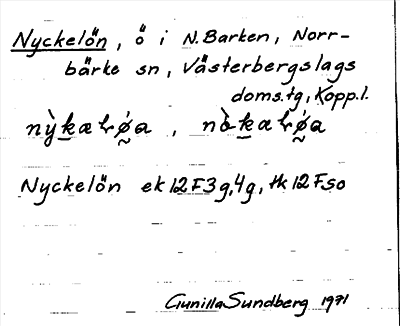 Nyckelön, ö i N. Barken, Norr-
bärke sn, Västerbergslags
doms. tg, Kopp. l.
Nyckelön ek 12 F 3 g, 4g, tk 12 F so
Gunilla Sundberg 1971